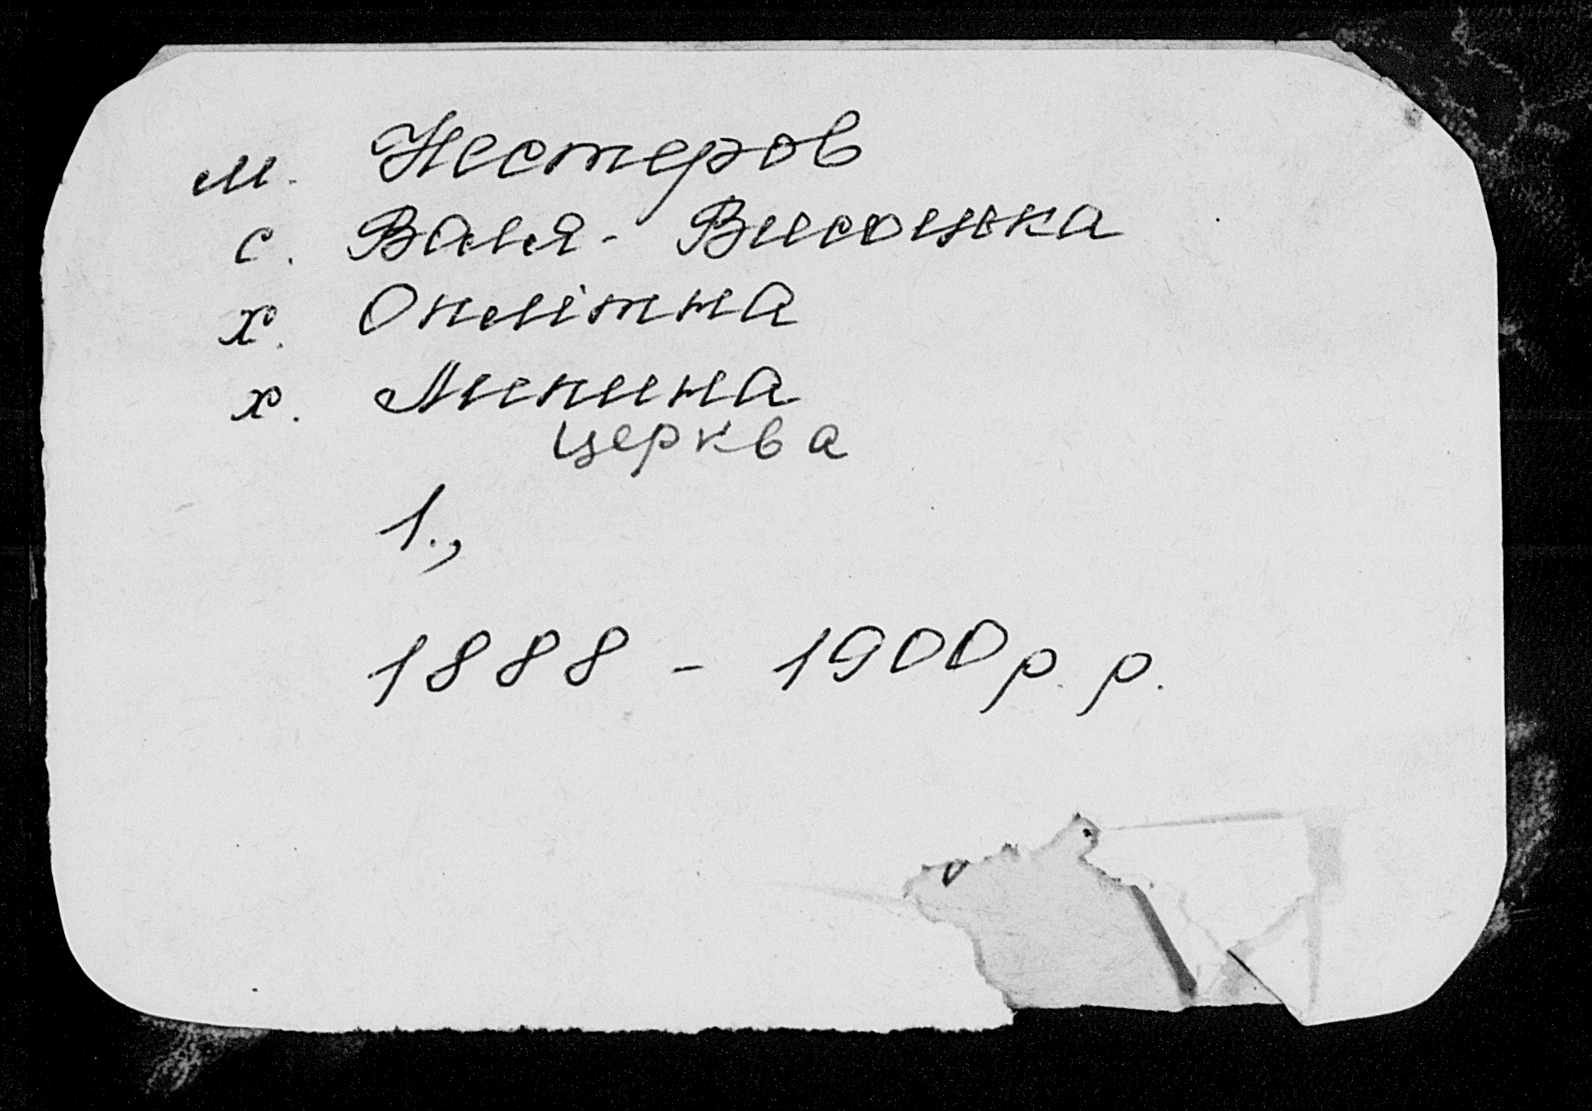 м. Нестеров
с. Валя-Висоцька
х. Онлітна
х. Липина
церква
1.,
1888 - 1900 р. р.